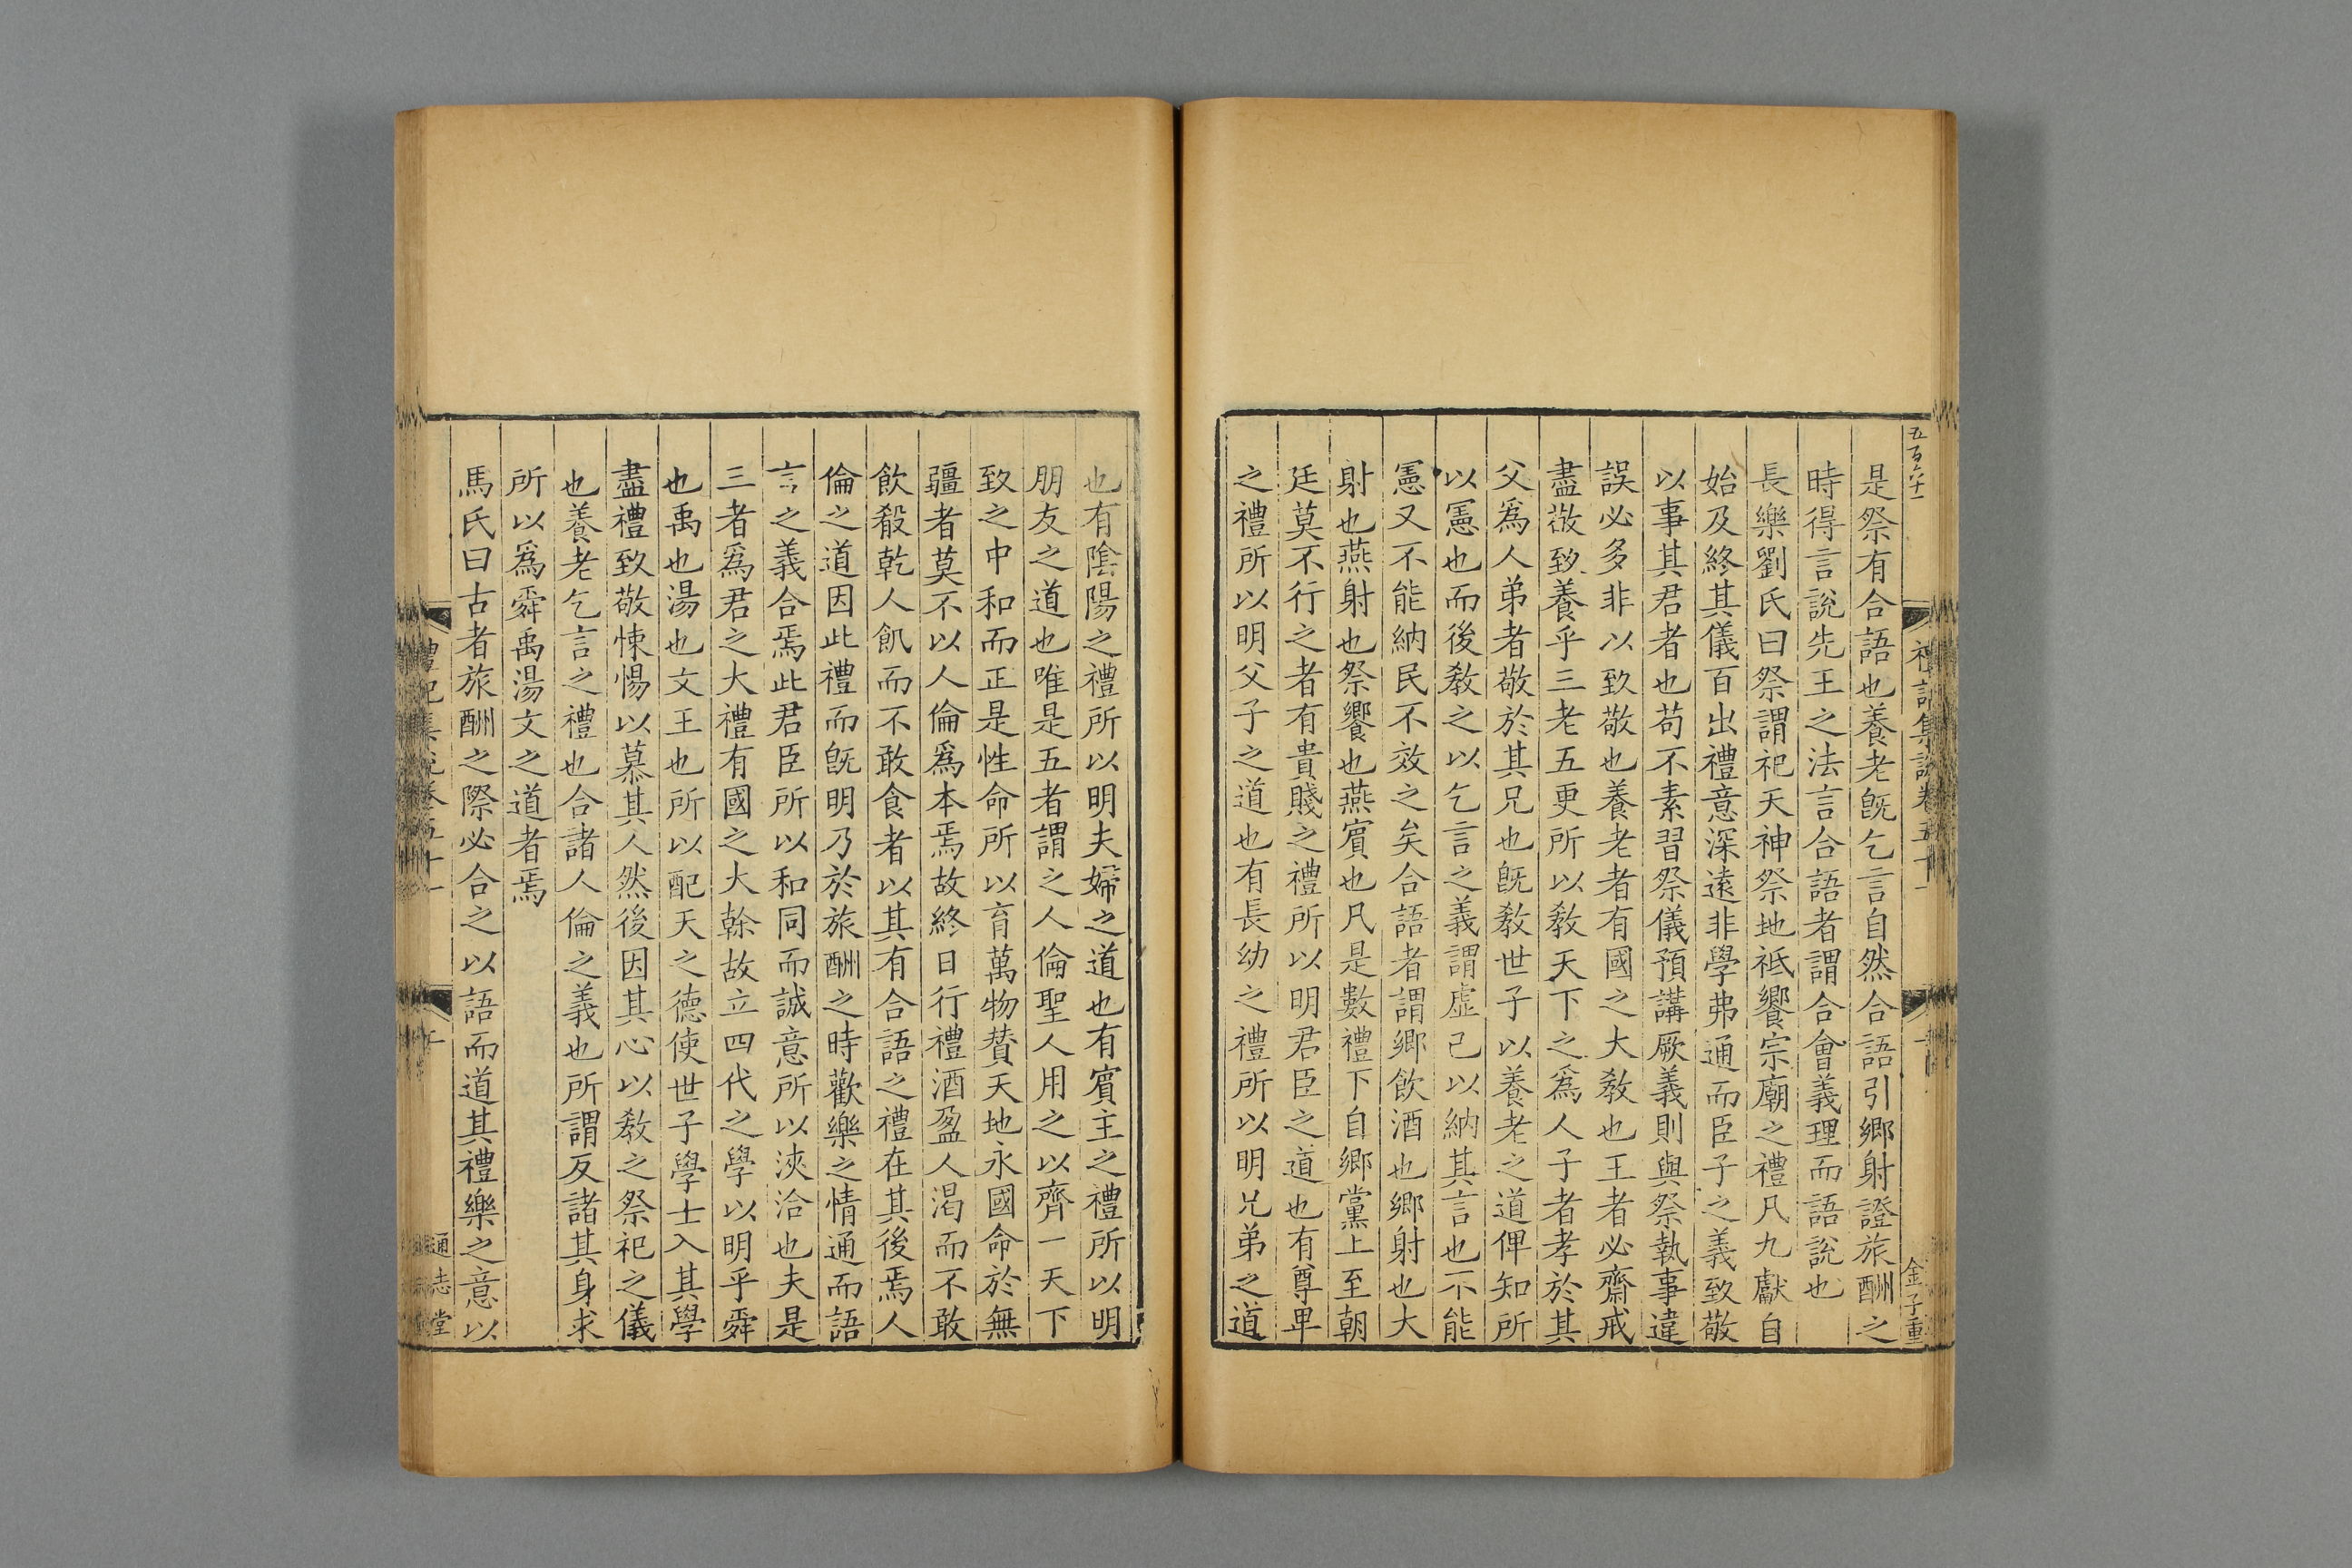 五百六十一
禮記集說卷五十一
金子重
是祭有合語也養老旣乞言自然合語引鄉射證旅酬之
時得言說先王之法言合語者謂合會義理而語說也
長樂劉氏曰祭謂祀天神祭地祗饗宗廟之禮凡九獻自
始及終其儀百出禮意深遠非學弗通而臣子之義致敬
以事其君者也苟不素習祭儀預講厥義則與祭執事違
誤必多非以致敬也養老者有國之大敎也王者必齋戒
盡敬致養乎三老五更所以敎天下之爲人子者孝於其
父爲人弟者敬於其兄也旣敎世子以養老之道俾知所
以憲也而後敎之以乞言之義謂虛己以納其言也不能
憲又不能納民不效之矣合語者謂鄉飲酒也鄉射也大
射也燕射也祭饗也燕賓也凡是數禮下自鄉黨上至朝
廷莫不行之者有貴賤之禮所以明君臣之道也有尊卑
之禮所以明父子之道也有長幼之禮所以明兄弟之道
也有陰陽之禮所以明夫婦之道也有賓主之禮所以明
朋友之道也唯是五者謂之人倫聖人用之以齊一天下
致之中和而正是性命所以育萬物贊天地永國命於無
疆者莫不以人倫爲本焉故終日行禮酒盈人渴而不敢
飲殽乾人飢而不敢食者以其有合語之禮在其後焉人
倫之道因此禮而旣明乃於旅酬之時歡樂之情通而語
言之義合焉此君臣所以和同而誠意所以浹洽也夫是
三者爲君之大禮有國之大榦故立四代之學以明乎舜
也禹也湯也文王也所以配天之德使世子學士入其學
盡禮致敬悚惕以慕其人然後因其心以敎之祭祀之儀
也養老乞言之禮也合諸人倫之義也所謂反諸其身求
所以爲舜禹湯文之道者焉
馬氏曰古者旅酬之際必合之以語而道其禮樂之意以
禮記集說卷五十一
通志堂